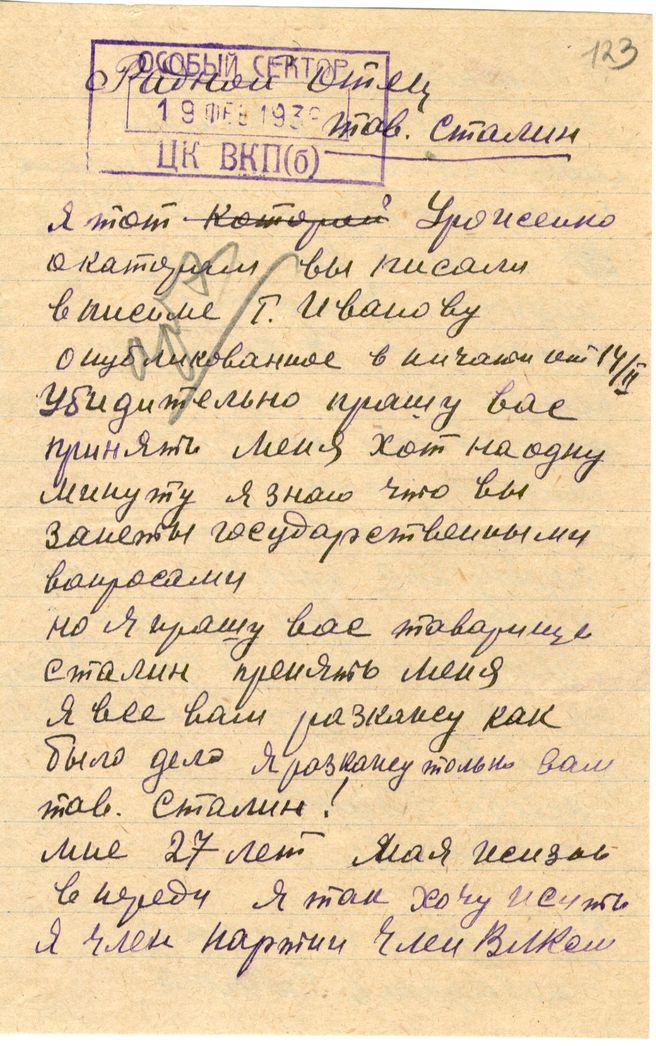 123
ОСОБЫЙ СЕКТОР
19 ФЕВ 193
ЦК ВКП(б)
Радной Отец
тав. Сталин
Я тот которой Уроженко
о каторам вы писали
в письме Т. Иванову
опубликованное в пичати от 14/II
Убидительно прашу вас
принять меня хот на одну
минуту я знаю что вы
занеты государственными
вапросами
но Я прашу вас таварище
Сталин пренять меня
Я все вам разкажу как
было дело Я разкажу только вам
тав. Сталин!
мне 27 лет мая жизнь
в переди Я так хочу жить
Я член партии член ВЛКсм